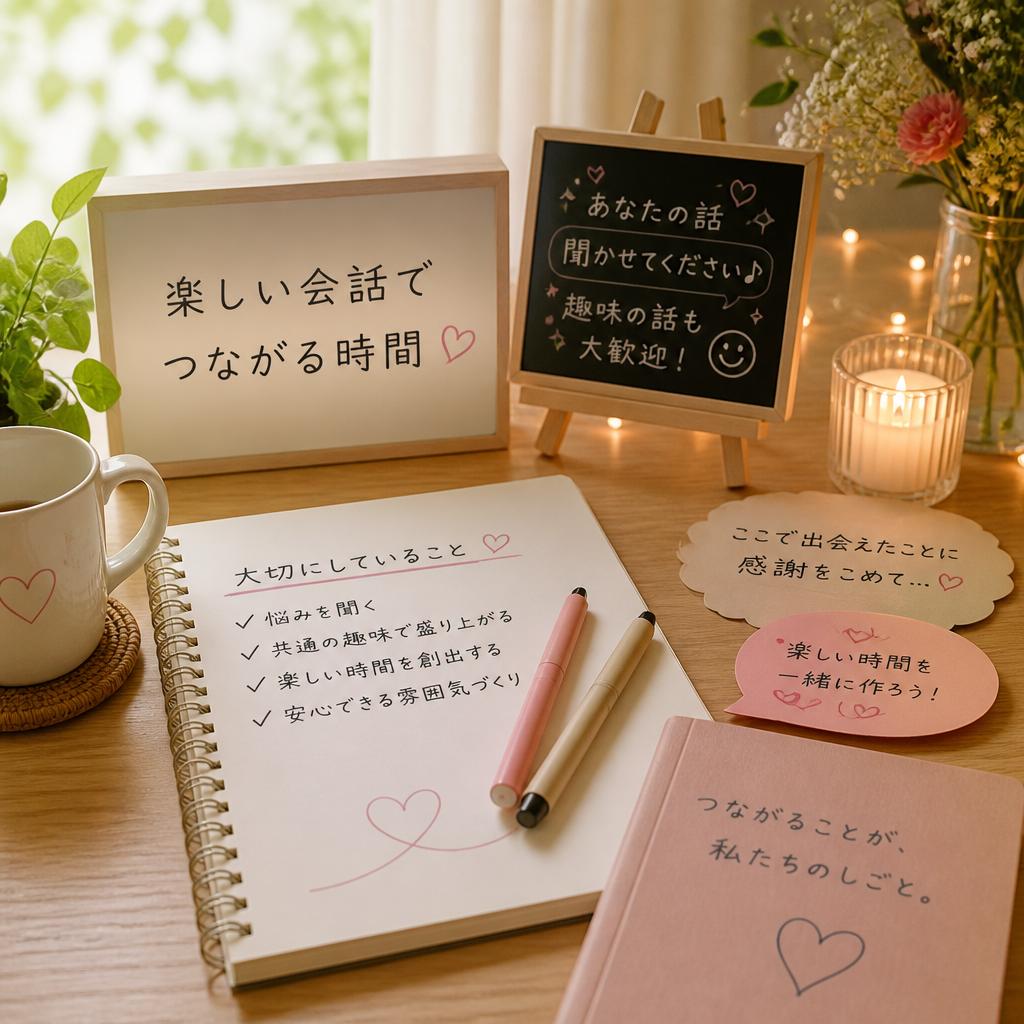 楽しい会話で
つながる時間
あなたの話
聞かせてください♪
趣味の話も
大歓迎！
大切にしていること
✓ 悩みを聞く
✓ 共通の趣味で盛り上がる
✓ 楽しい時間を創出する
✓ 安心できる雰囲気づくり
ここで出会えたことに
感謝をこめて…
楽しい時間を
一緒に作ろう！
つながることが、
私たちのしごと。